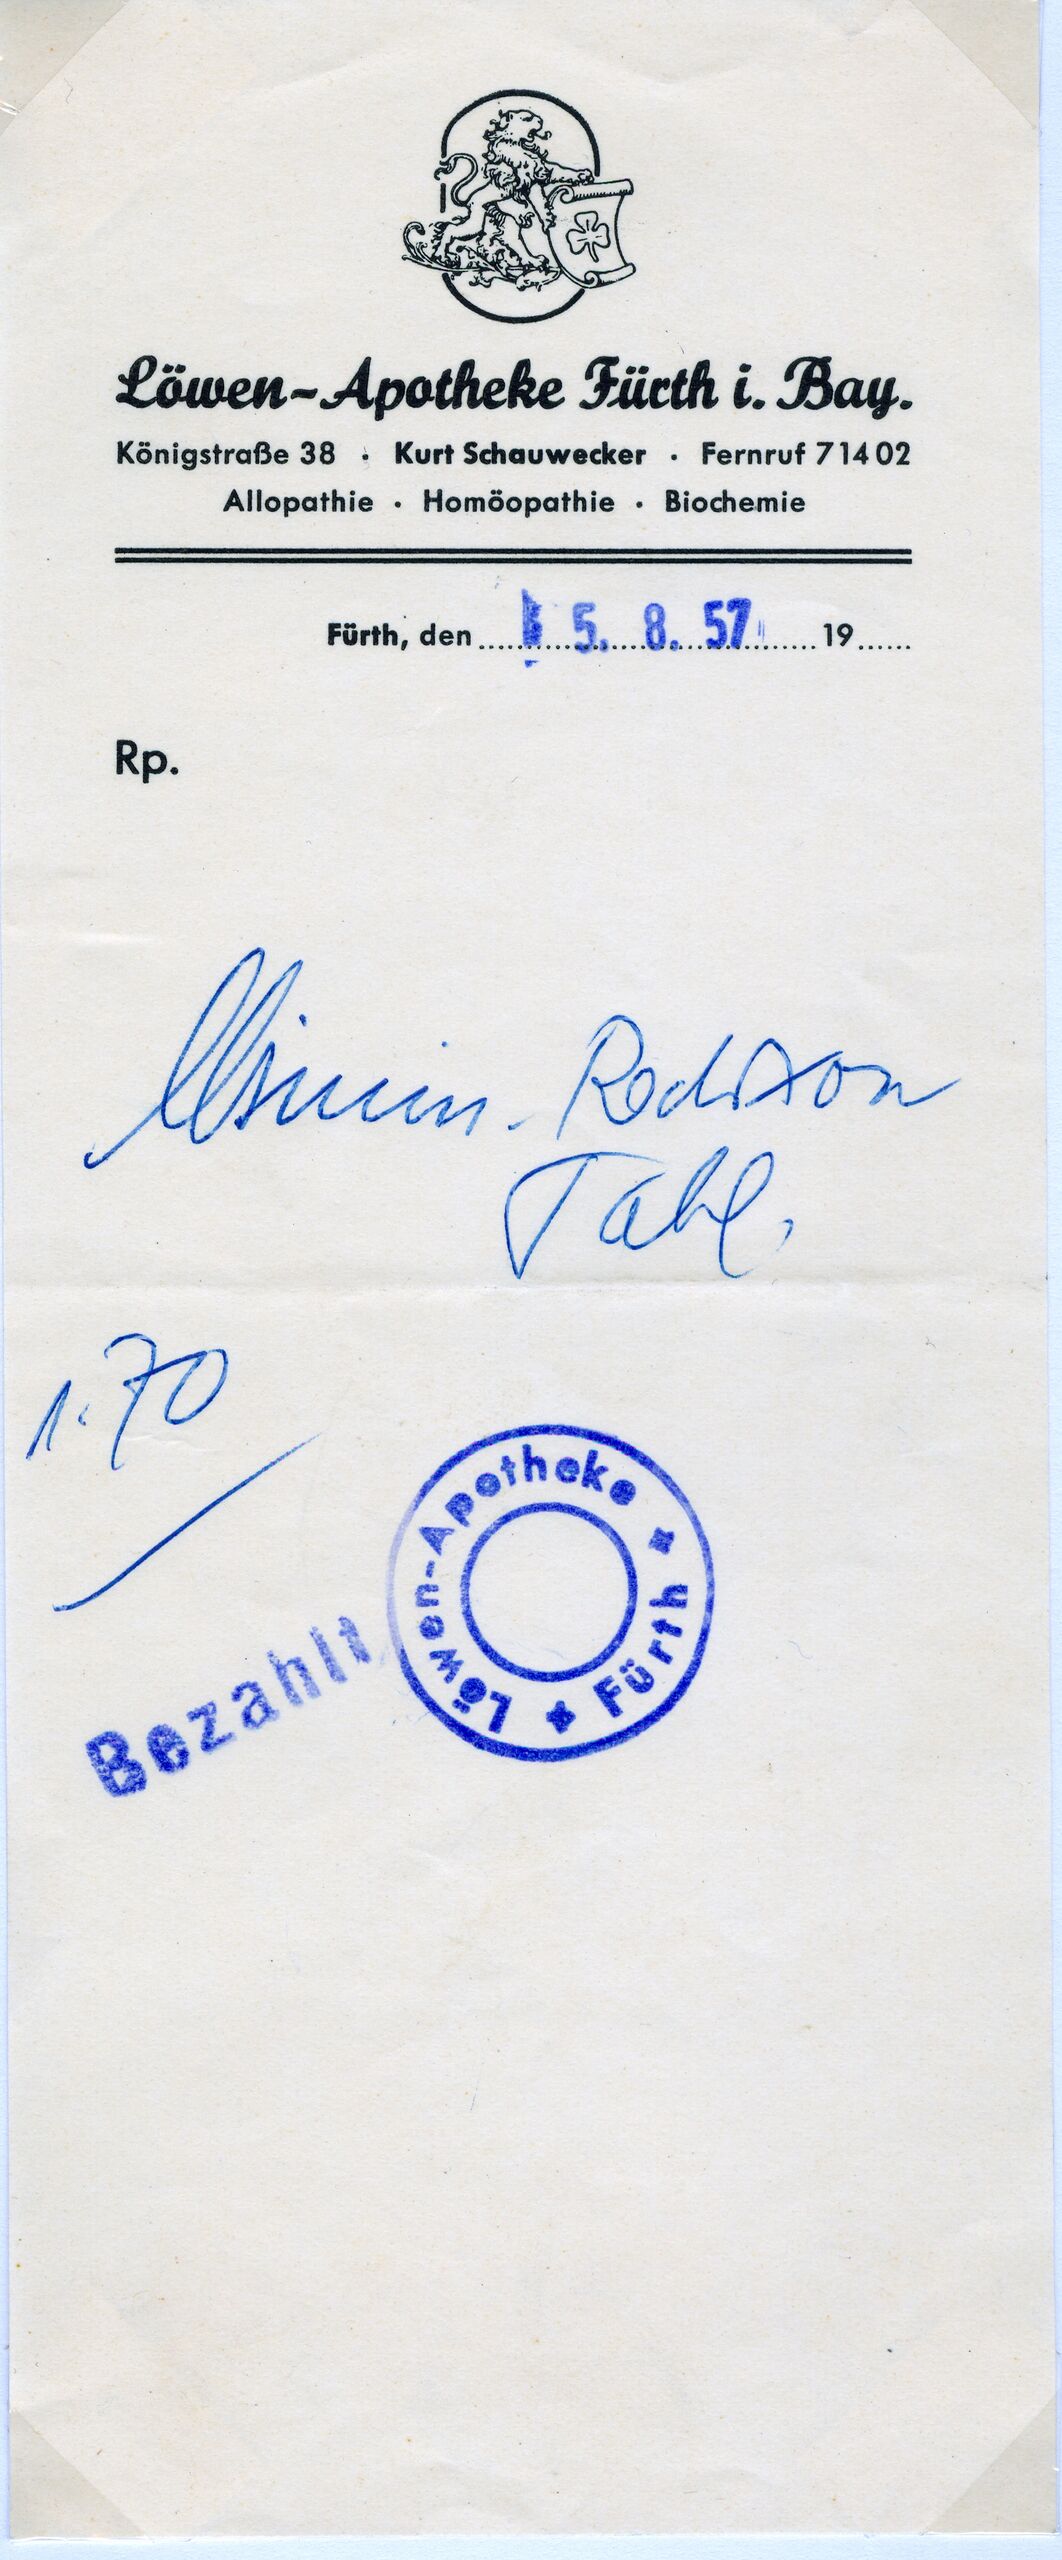 Löwen-Apotheke Fürth i. Bay.
Königstraße 38 · Kurt Schauwecker · Fernruf 71402
Allopathie · Homöopathie · Biochemie
Fürth, den 5. 8. 57 19
Rp.
Tabl.
1.70
Löwen-Apotheke + Fürth +
Bezahlt